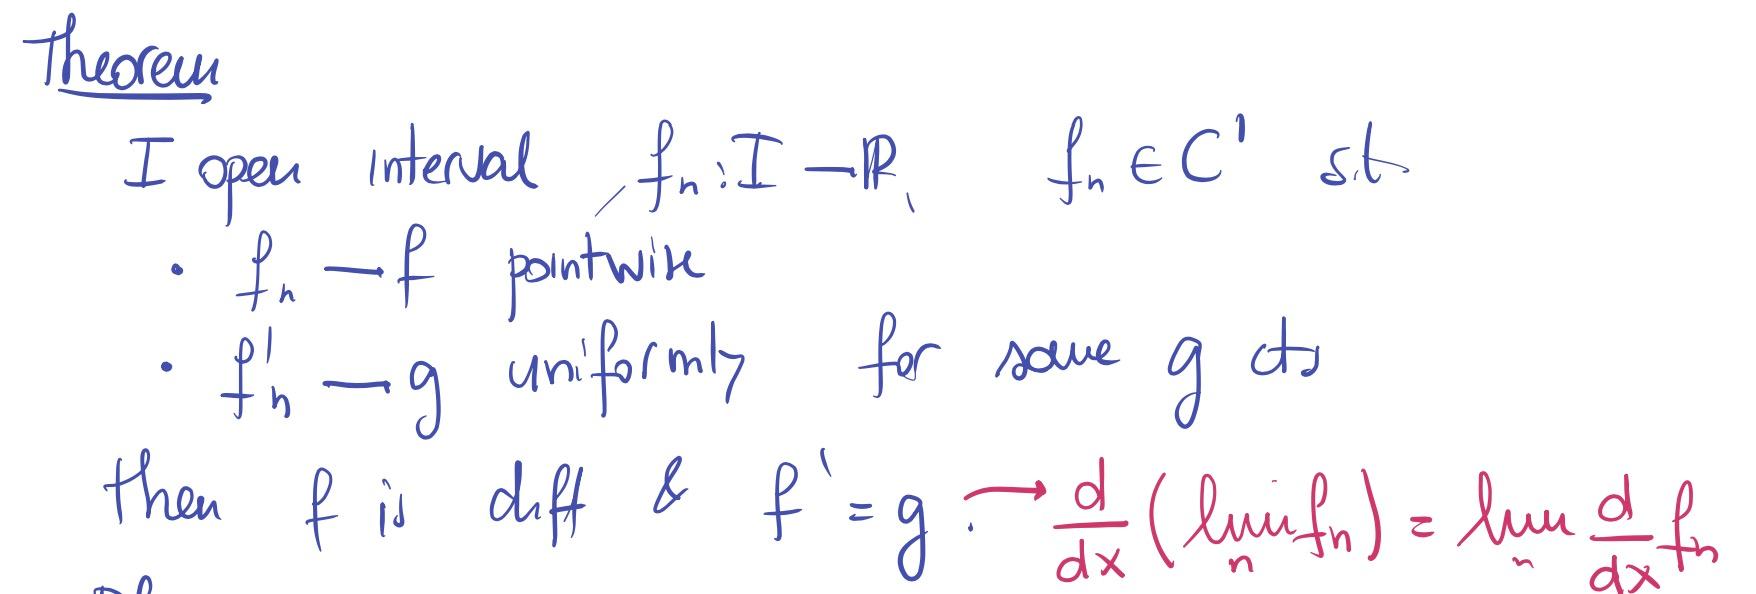 Theorem
I open interval, fₙ : I → ℝ, fₙ ∈ C¹ st
• fₙ → f pointwise
• fₙ' → g uniformly for some g cts
then f is diff & f' = g. → d/dx (lim_n fₙ) = lim_n d/dx fₙ